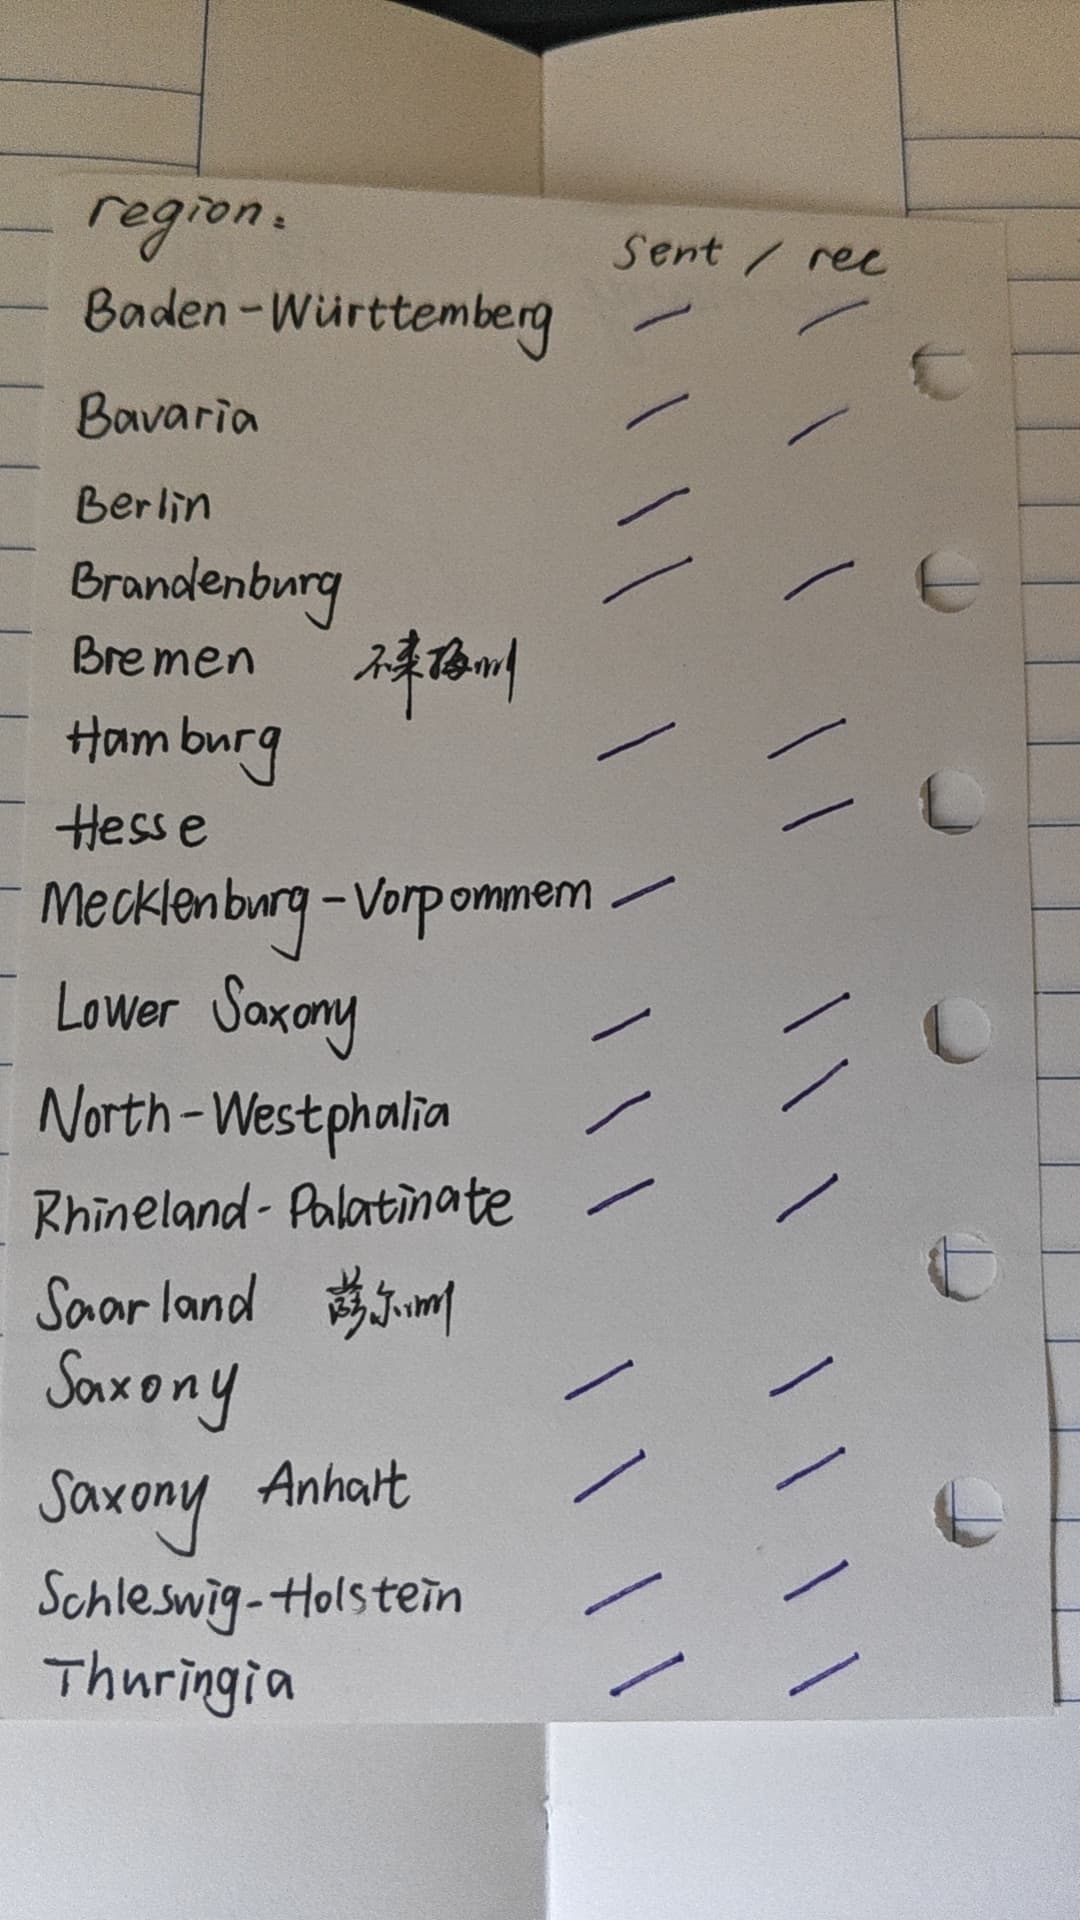 region:
sent / rec
Baden-Württemberg — —
Bavaria — —
Berlin —
Brandenburg — —
Bremen 不来梅州
Hamburg — —
Hesse —
Mecklenburg-Vorpommern —
Lower Saxony — —
North-Westphalia — —
Rhineland-Palatinate — —
Saarland 萨尔州
Saxony — —
Saxony Anhalt — —
Schleswig-Holstein — —
Thuringia — —